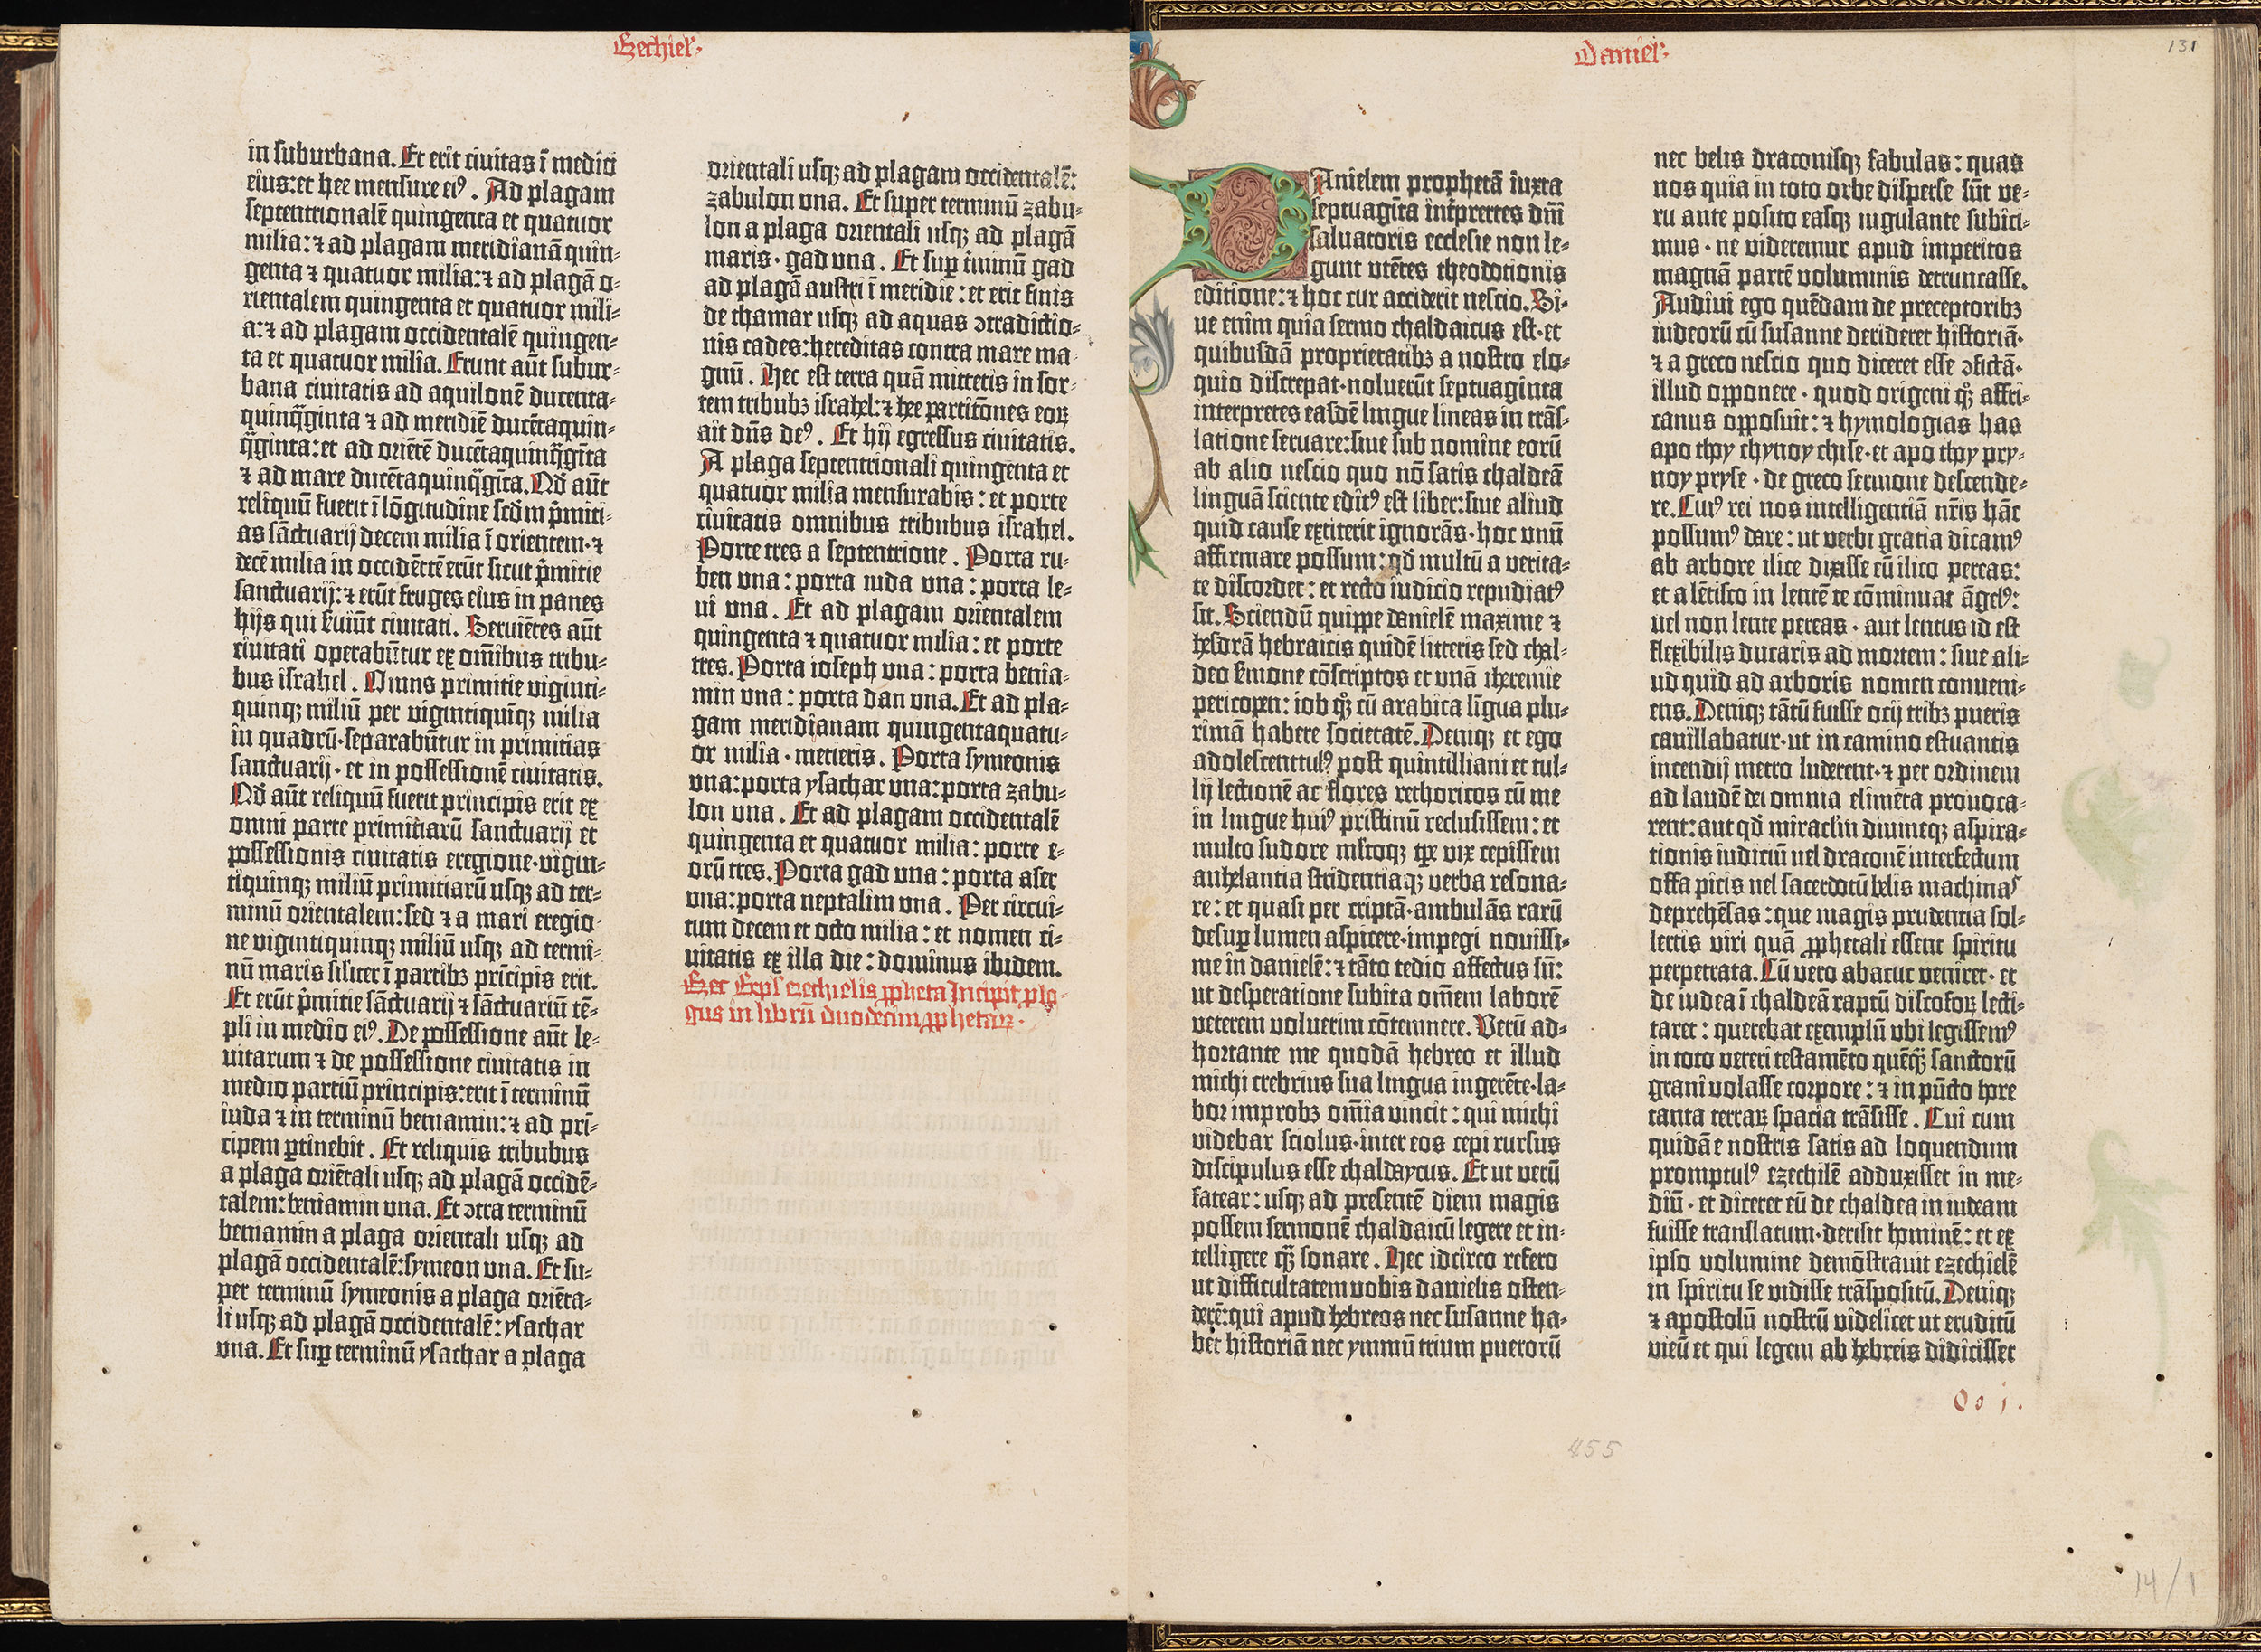 Ezechiel.
in suburbana. Et erit ciuitas ī medio
eius: et hee mensure eiꝰ. Ad plagam
septentrionalē quingenta et quatuor
milia: ⁊ ad plagam meridianā quin⸗
genta ⁊ quatuor milia: ⁊ ad plagā o⸗
rientalem quingenta et quatuor mili⸗
a: ⁊ ad plagam occidentalē quingen⸗
ta et quatuor milia. Erunt aūt subur⸗
bana ciuitatis ad aquilonē ducenta⸗
quinq̄ginta ⁊ ad meridiē ducētaquin⸗
q̄ginta: et ad oriētē ducētaquinq̄gīta
⁊ ad mare ducētaquinq̄gīta. Qd̄ aūt
reliquū fuerit ī lōgitudine scd̄m p̄miti⸗
as sāctuarij decem milia ī orientem· ⁊
decē milia in occidētē erūt sicut p̄mitie
sanctuarij: ⁊ erūt fruges eius in panes
hijs qui s̄uiūt ciuitati. Seruiētes aūt
ciuitati operabūtur ex om̄ibus tribu⸗
bus israhel. Omns primitie viginti⸗
quinqꝫ miliū per vigintiquīqꝫ milia
in quadrū· separabūtur in primitias
sanctuarij· et in possessionē ciuitatis.
Qd̄ aūt reliquū fuerit principis erit ex
omni parte primitiarū sanctuarij et
possessionis ciuitatis eregione· vigin⸗
tiquinqꝫ miliū primitiarū usqꝫ ad ter⸗
minū orientalem: sed ⁊ a mari eregio⸗
ne vigintiquinqꝫ miliū usqꝫ ad termi⸗
nū maris sil̄iter ī partibꝫ prīcipis erit.
Et erūt p̄mitie sāctuarij ⁊ sāctuariū tē⸗
pli in medio eiꝰ. De possessione aūt le⸗
uitarum ⁊ de possessione ciuitatis in
medio partiū principis: erit ī terminū
iuda ⁊ in terminū beniamin: ⁊ ad pri⸗
cipem ꝑtinebit. Et reliquis tribubus
a plaga oriētali usqꝫ ad plagā occidē⸗
talem: beniamin vna. Et ↄtra terminū
beniamin a plaga orientali usqꝫ ad
plagā occidentalē: symeon vna. Et su⸗
per terminū symeonis a plaga oriēta⸗
li usqꝫ ad plagā occidentalē: ysachar
vna. Et suꝑ terminū ysachar a plaga
orientali usqꝫ ad plagam occidentalē:
zabulon vna. Et super terminū zabu⸗
lon a plaga orientali usqꝫ ad plagā
maris· gad vna. Et suꝑ t̄minū gad
ad plagā austri ī meridie: et erit finis
de thamar usqꝫ ad aquas ↄtradictio⸗
nis cades: hereditas contra mare ma⸗
gnū. Hec est terra quā mittetis in sor⸗
tem tribubꝫ israhel: ⁊ hee partitōnes eoꝝ
ait dn̄s deꝰ. Et hij egressus ciuitatis.
A plaga septentrionali quingenta et
quatuor milia mensurabis: et porte
ciuitatis omnibus tribubus israhel.
Porte tres a septentrione. Porta ru⸗
ben vna: porta iuda vna: porta le⸗
ui vna. Et ad plagam orientalem
quingenta ⁊ quatuor milia: et porte
tres. Porta ioseph vna: porta benia⸗
min vna: porta dan vna. Et ad pla⸗
gam meridianam quingentaquatu⸗
or milia· metieris. Porta symeonis
vna: porta ysachar vna: porta zabu⸗
lon vna. Et ad plagam occidentalē
quingenta et quatuor milia: porte e⸗
orū tres. Porta gad vna: porta aser
vna: porta neptalim vna. Per circui⸗
tum decem et octo milia: et nomen ci⸗
uitatis ex illa die: dominus ibidem.
ezechielis ꝓpheta Incipit plo⸗
gus in librū duodecim ꝓphetaꝝ.
Daniel.
131
DAnielem prophetā iuxta
septuagīta int̄pretes dn̄i
saluatoris ecclesie non le⸗
gunt vtētes theodotionis
editione: ⁊ hoc cur acciderit nescio. Si⸗
ue enim quia sermo chaldaicus est· et
quibusdā proprietatibꝫ a nostro elo⸗
quio discrepat· noluerūt septuaginta
interpretes easdē lingue lineas in trās⸗
latione seruare: siue sub nomine eorū
ab alio nescio quo nō satis chaldeā
linguā sciente editꝰ est liber: siue aliud
quid cause extiterit ignorās· hoc unū
affirmare possum: qd̄ multū a verita⸗
te discordet: et recto iudicio repudiatꝰ
sit. Sciendū quippe danielē maxime ⁊
hesdrā hebraicis quidē litteris sed chal⸗
deo s̄mone cōscriptos et unā iheremie
pericopen: iob qͦꝫ cū arabica līgua plu⸗
rimā habere societatē. Deniqꝫ et ego
adolescentulꝰ post quintilliani et tul⸗
lij lectionē ac flores rethoricos cū me
in lingue huiꝰ pristinū reclusissem: et
multo sudore mltoqꝫ tꝑe vix cepissem
anhelantia stridentiaqꝫ verba resona⸗
re: et quasi per criptā· ambulās rarū
desuꝑ lumen aspicere· impegi nouissi⸗
me in danielē: ⁊ tāto tedio affectus sū:
ut desperatione subita om̄em laborē
veterem voluerim cōtemnere. Verū ad⸗
hortante me quodā hebreo et illud
michi crebrius sua lingua ingerēte· la⸗
bor improbꝫ om̄ia vincit: qui michi
videbar sciolus· inter eos cepi rursus
discipulus esse chaldaycus. Et ut verū
fatear: usqꝫ ad presentē diem magis
possem sermonē chaldaicū legere et in⸗
telligere qͣꝫ sonare. Hec idcirco refero
ut difficultatem vobis danielis osten⸗
derē: qui apud hebreos nec susanne ha⸗
bet historiā nec ymmū trium puerorū
nec belis draconisqꝫ fabulas: quas
nos quia in toto orbe disperse sūt ve⸗
ru ante posito easqꝫ iugulante subici⸗
mus· ne videremur apud imperitos
magnā partē voluminis detruncasse.
Audiui ego quēdam de preceptoribꝫ
iudeorū cū susanne derideret historiā·
⁊ a greco nescio quo diceret esse ↄfictā·
illud opponere· quod origeni qͦꝫ affri⸗
canus opposuit: ⁊ hymologias has
apo thoy chynoy chise· et apo thoy pry⸗
noy pryse· de greco sermone descende⸗
re. Cuiꝰ rei nos intelligentiā nr̄is hāc
possumꝰ dare: ut verbi gratia dicamꝰ
ab arbore ilice dixisse eū ilico pereas:
et a lētisco in lentē te cōminuat āgelꝰ:
uel non lente pereas· aut lentus id est
flexibilis ducaris ad mortem: siue ali⸗
ud quid ad arboris nomen conueni⸗
ens. Deniqꝫ tātū fuisse ocij tribꝫ pueris
cauillabatur· ut in camino estuantis
incendij metro luderent· ⁊ per ordinem
ad laudē dei omnia elimēta prouoca⸗
rent: aut qd̄ miraclm diuineqꝫ aspira⸗
tionis iudiciū uel draconē interfectum
offa picis uel sacerdotū belis machinas
deprehēsas: que magis prudentia sol⸗
lertis viri quā ꝓphetali essent spiritu
perpetrata. Cū vero abacuc veniret· et
de iudea ī chaldeā raptū discoforꝝ lecti⸗
taret: querebat exemplū vbi legissemꝰ
in toto veteri testamēto quēqͣꝫ sanctorū
graui volasse corpore: ⁊ in pūcto hore
tanta terraꝝ spacia trāsisse. Cui cum
quidā e nostris satis ad loquendum
promptulꝰ ezechilē adduxisset in me⸗
diū· et diceret eū de chaldea in iudeam
fuisse translatum· derisit hominē: et ex
ipso volumine demōstrauit ezechielē
in spiritu se vidisse trāspositū. Deniqꝫ
⁊ apostolū nostrū videlicet ut eruditū
virū et qui legem ab hebreis didicisset
455
14/1